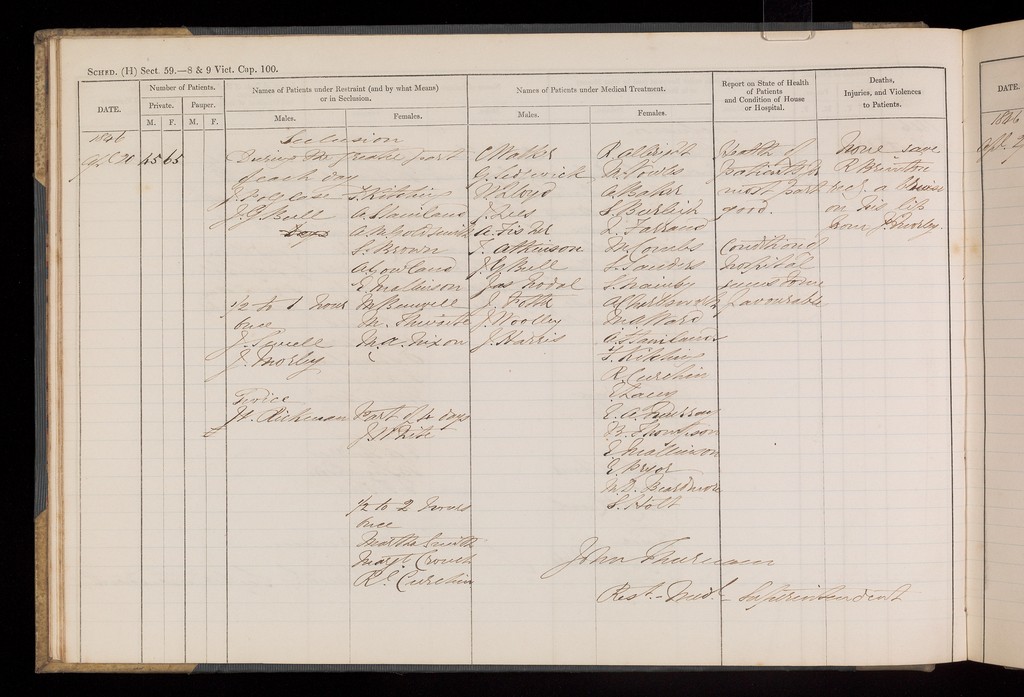 Sched. (H) Sect. 59.—8 & 9 Vict. Cap. 100.
DATE.
Number of Patients.
Private.
Pauper.
M.
F.
M.
F.
Names of Patients under Restraint (and by what Means)
or in Seclusion.
Males.
Females.
Names of Patients under Medical Treatment.
Males.
Females.
Report on State of Health
of Patients
and Condition of House
or Hospital.
Deaths,
Injuries, and Violences
to Patients.
1846
45 65
Seclusion
During the greater part
of each day
J. G. Bull
1/2 to 1 hour
once
J. Morley
Twice
W. Rickman
A. Stainland
S. Brown
E. Mallinson
M. Thwaite
M. A. Nixon
Part of 4 days
J. White
1/2 to 2 hours
once
Martha Smith
Margt. Crouch
R. Curchin
G. Sedgwick
W. Lloyd
J. Lees
A. Fisher
T. Atkinson
J. G. Bull
Jas Nodal
J. Frith
J. Woolley
J. Harris
R. Allbright
M. Fowler
A. Baker
S. Burleigh
L. Farrand
M. Combs
S. Sanders
M. A. Ward
A. Stainland
F. Kitching
R. Curchin
E. Lacey
E. A. Murray
R. Thompson
E. Mallinson
E. Pryor
M. D. Beardmore
S. Holt
Health of
Patients for
most part
good.
Condition of
Hospital
favourable
None save
R. Brinton
a bruise
on his lip
from J. Morley.
John Thurnam
Rest. Medl. Superintendent
DATE.
1846